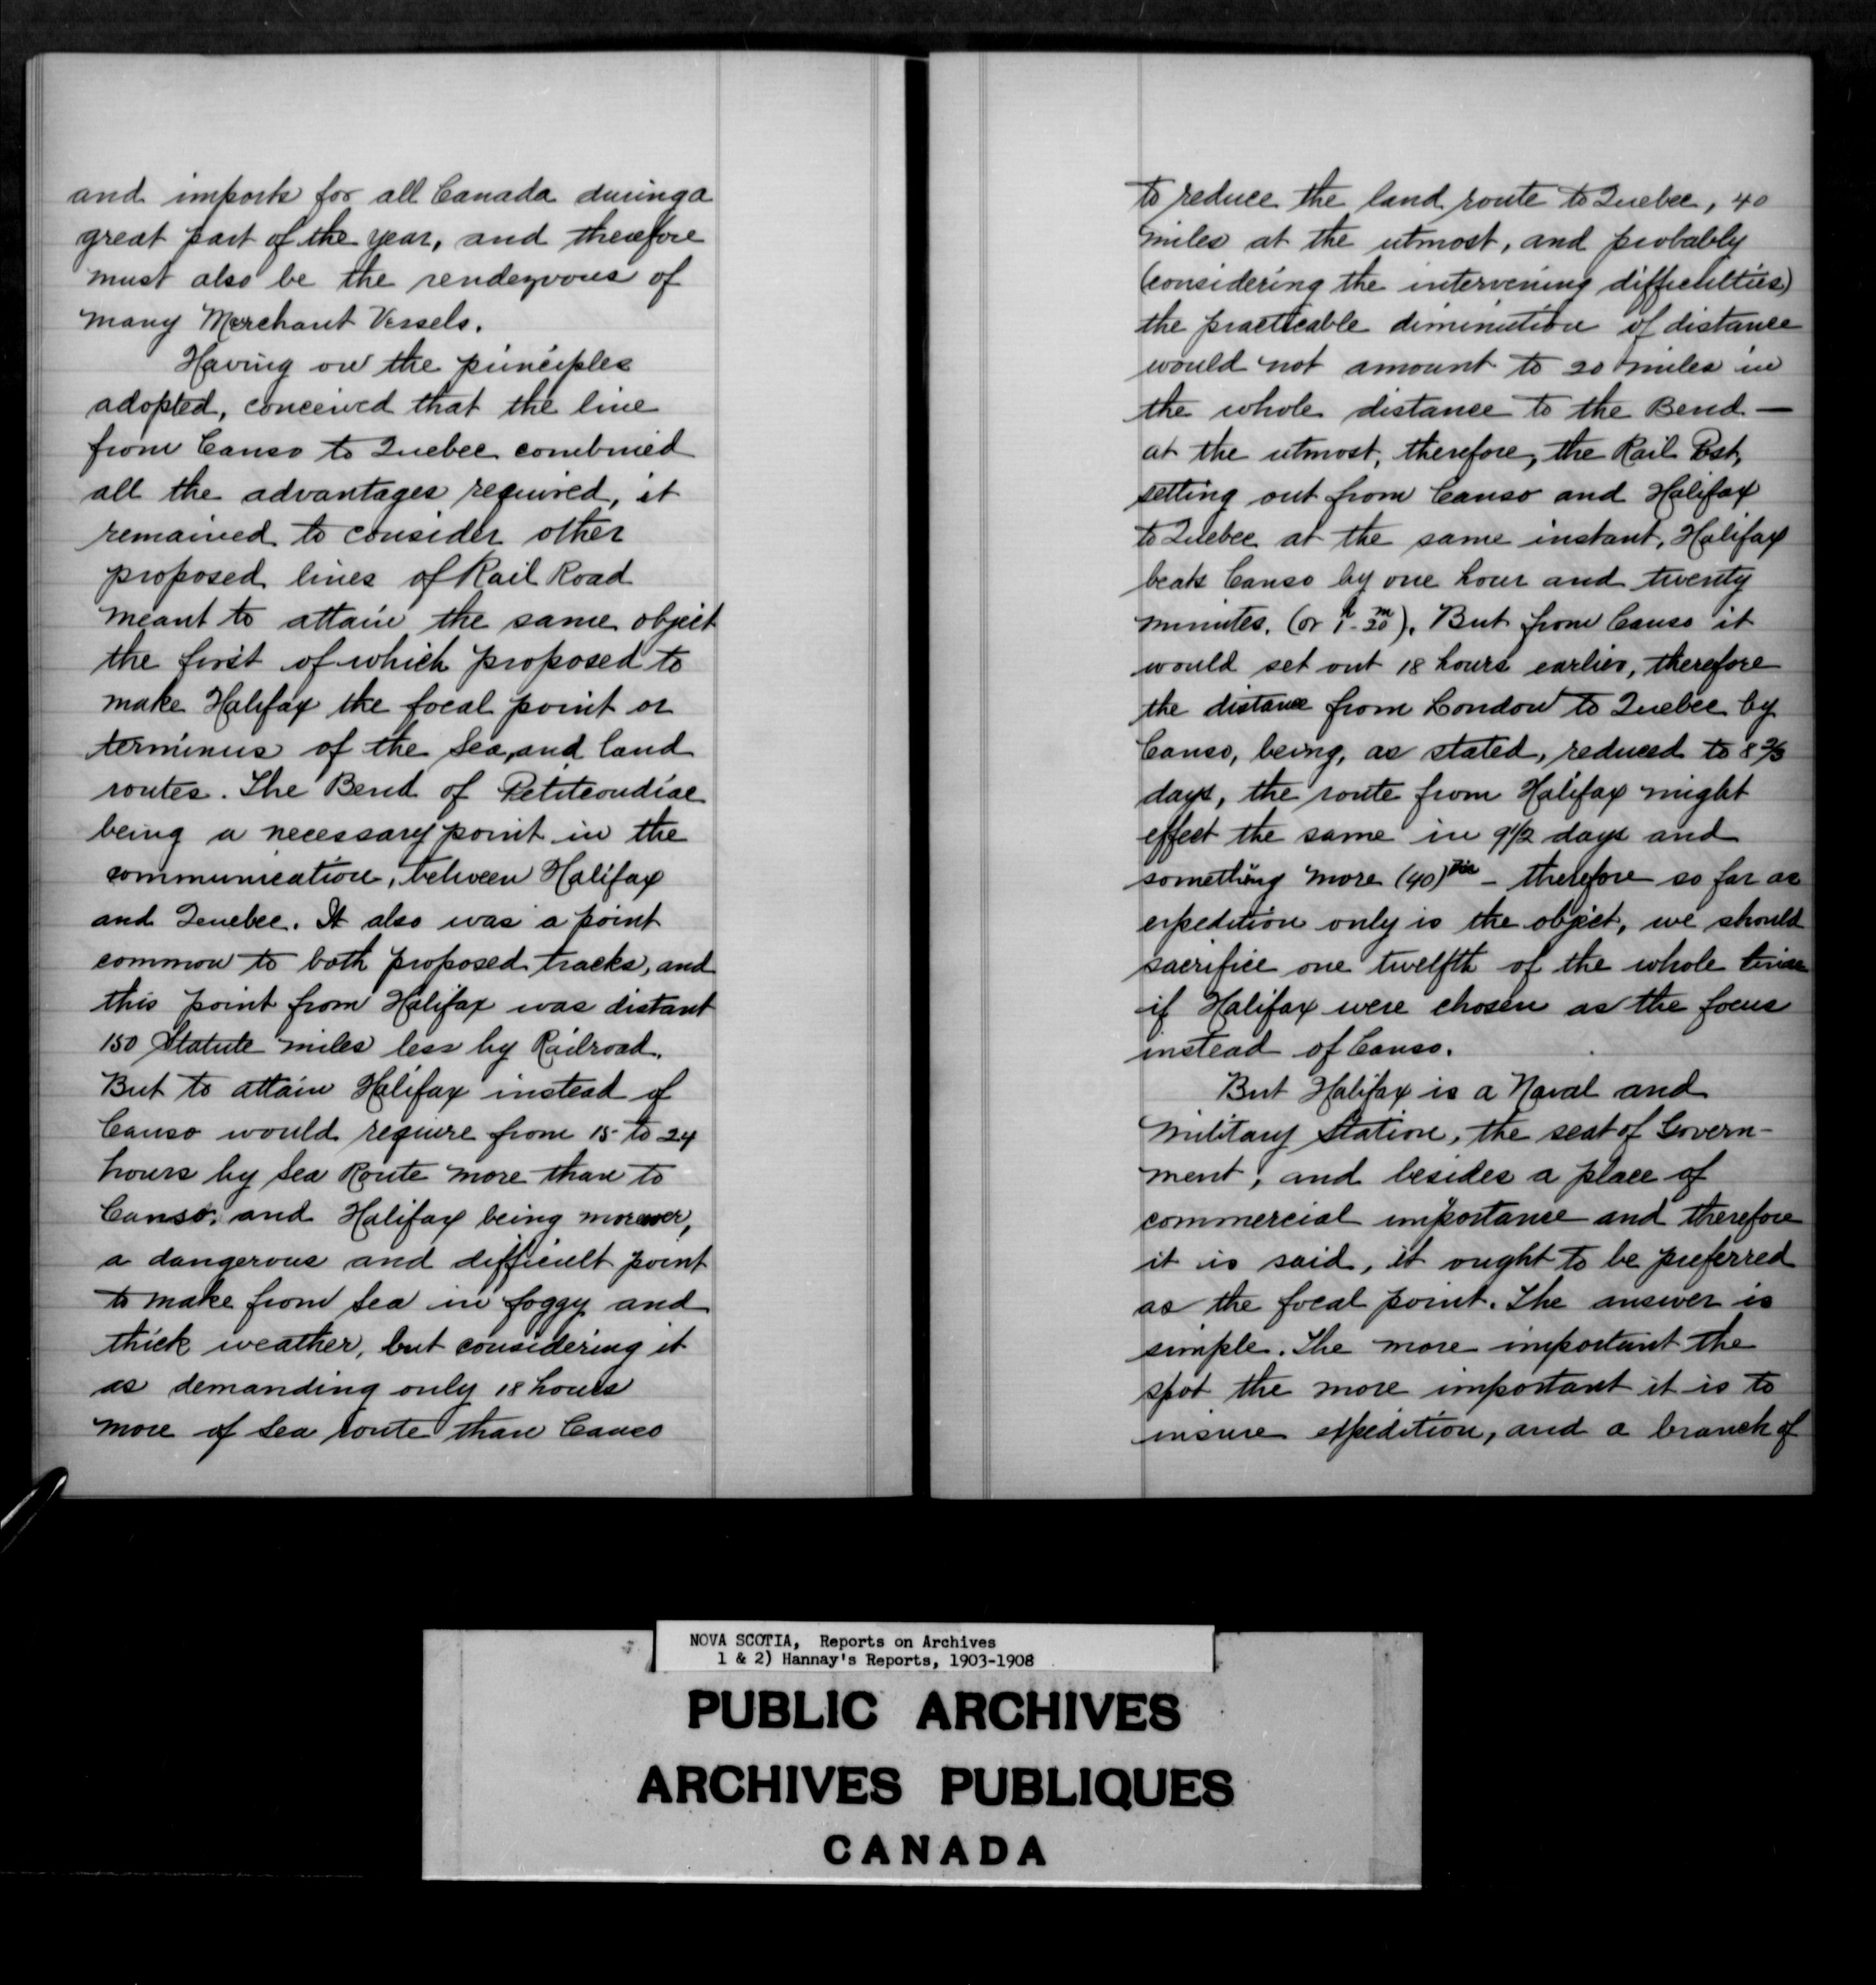 and imports for all Canada during a
great part of the year, and therefore
must also be the rendezvous of
many Merchant Vessels.
Having on the principles
adopted, conceived that the line
from Canso to Quebec combined
all the advantages required, it
remained to consider other
proposed lines of Rail Road
meant to attain the same object
the first of which proposed to
make Halifax the focal point or
terminus of the Sea, and land
routes. The Bend of Petitcondiac
being a necessary point in the
communication, between Halifax
and Quebec. It also was a point
common to both proposed tracks, and
this point from Halifax was distant
150 Statute miles less by Railroad.
But to attain Halifax instead of
Canso would require from 15 to 24
hours by Sea Route more than to
Canso, and Halifax being moreover,
a dangerous and difficult point
to make from Sea in foggy and
thick weather, but considering it
as demanding only 18 hours
more of Sea route than Canso
to reduce the land route to Quebec, 40
miles at the utmost, and probably
(considering the intervening difficulties)
the practicable diminution of distance
would not amount to 20 miles in
the whole distance to the Bend —
at the utmost, therefore, the Rail Post,
setting out from Canso and Halifax
to Quebec at the same instant, Halifax
beats Canso by one hour and twenty
minutes. (or 1h - 20m). But from Canso it
would set out 18 hours earlier, therefore
the distance from London to Quebec by
Canso, being, as stated, reduced to 8 2/3
days, the route from Halifax might
effect the same in 9 1/2 days and
something more (40) - therefore so far as
expedition only is the object, we should
sacrifice one twelfth of the whole time
if Halifax were chosen as the focus
instead of Canso.
But Halifax is a Naval and
Military Station, the seat of Govern-
ment, and besides a place of
commercial importance and therefore
it is said, it ought to be preferred
as the focal point. The answer is
simple. The more important the
spot the more important it is to
insure expedition, and a branch of
NOVA SCOTIA, Reports on Archives
1 & 2) Hannay's Reports, 1903-1908
PUBLIC ARCHIVES
ARCHIVES PUBLIQUES
CANADA